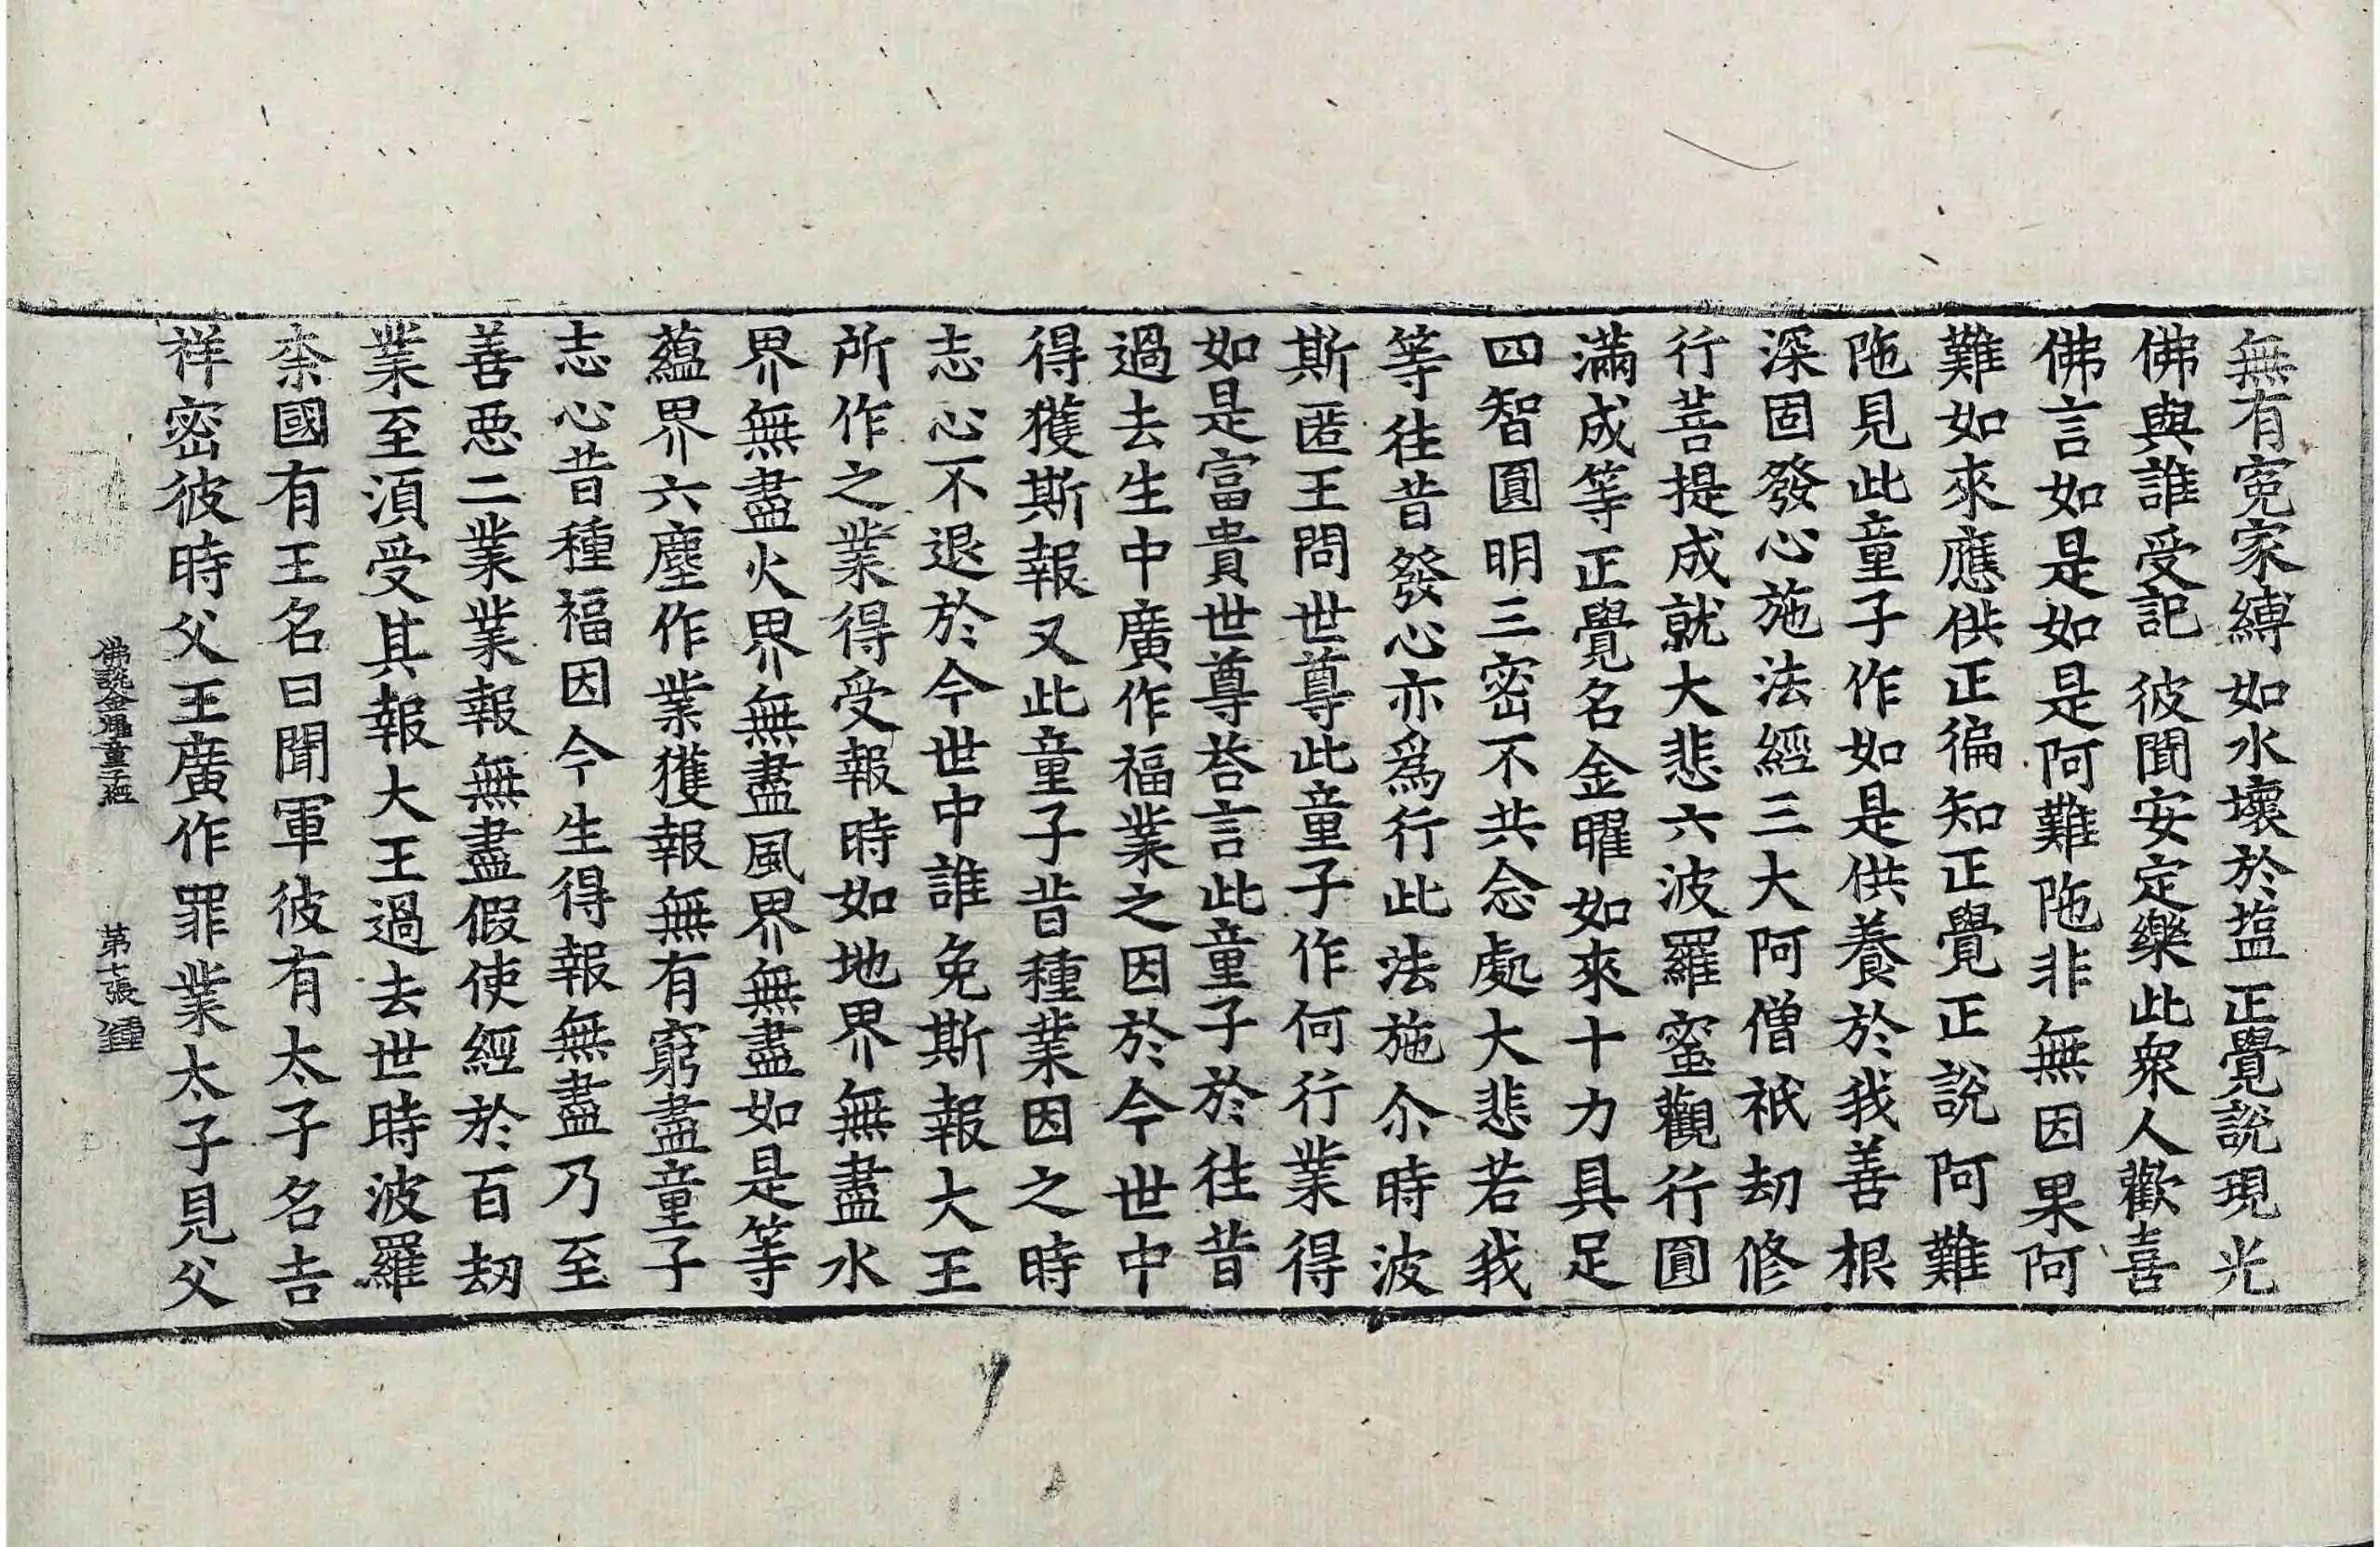 無有寃家縛 如水壞於塩 正覺說現光
佛與誰受記 彼聞安定樂 此衆人歡喜
佛言如是如是阿難陁非無因果阿
難如來應供正徧知正覺正說阿難
陁見此童子作如是供養於我善根
深固發心施法經三大阿僧祇劫修
行菩提成就大悲六波羅蜜觀行圓
滿成等正覺名金曜如來十力具足
四智圓明三密不共念處大悲若我
等往昔發心亦爲行此法施尒時波
斯匿王問世尊此童子作何行業得
如是富貴世尊荅言此童子於往昔
過去生中廣作福業之因於今世中
得獲斯報又此童子昔種業因之時
志心不退於今世中誰免斯報大王
所作之業得受報時如地界無盡水
界無盡火界無盡風界無盡如是等
蘊界六塵作業獲報無有窮盡童子
志心昔種福因今生得報無盡乃至
善惡二業業報無盡假使經於百劫
業至湏受其報大王過去世時波羅
柰國有王名曰聞軍彼有太子名吉
祥密彼時父王廣作罪業太子見父
佛說金耀童子經 第七張 鍾